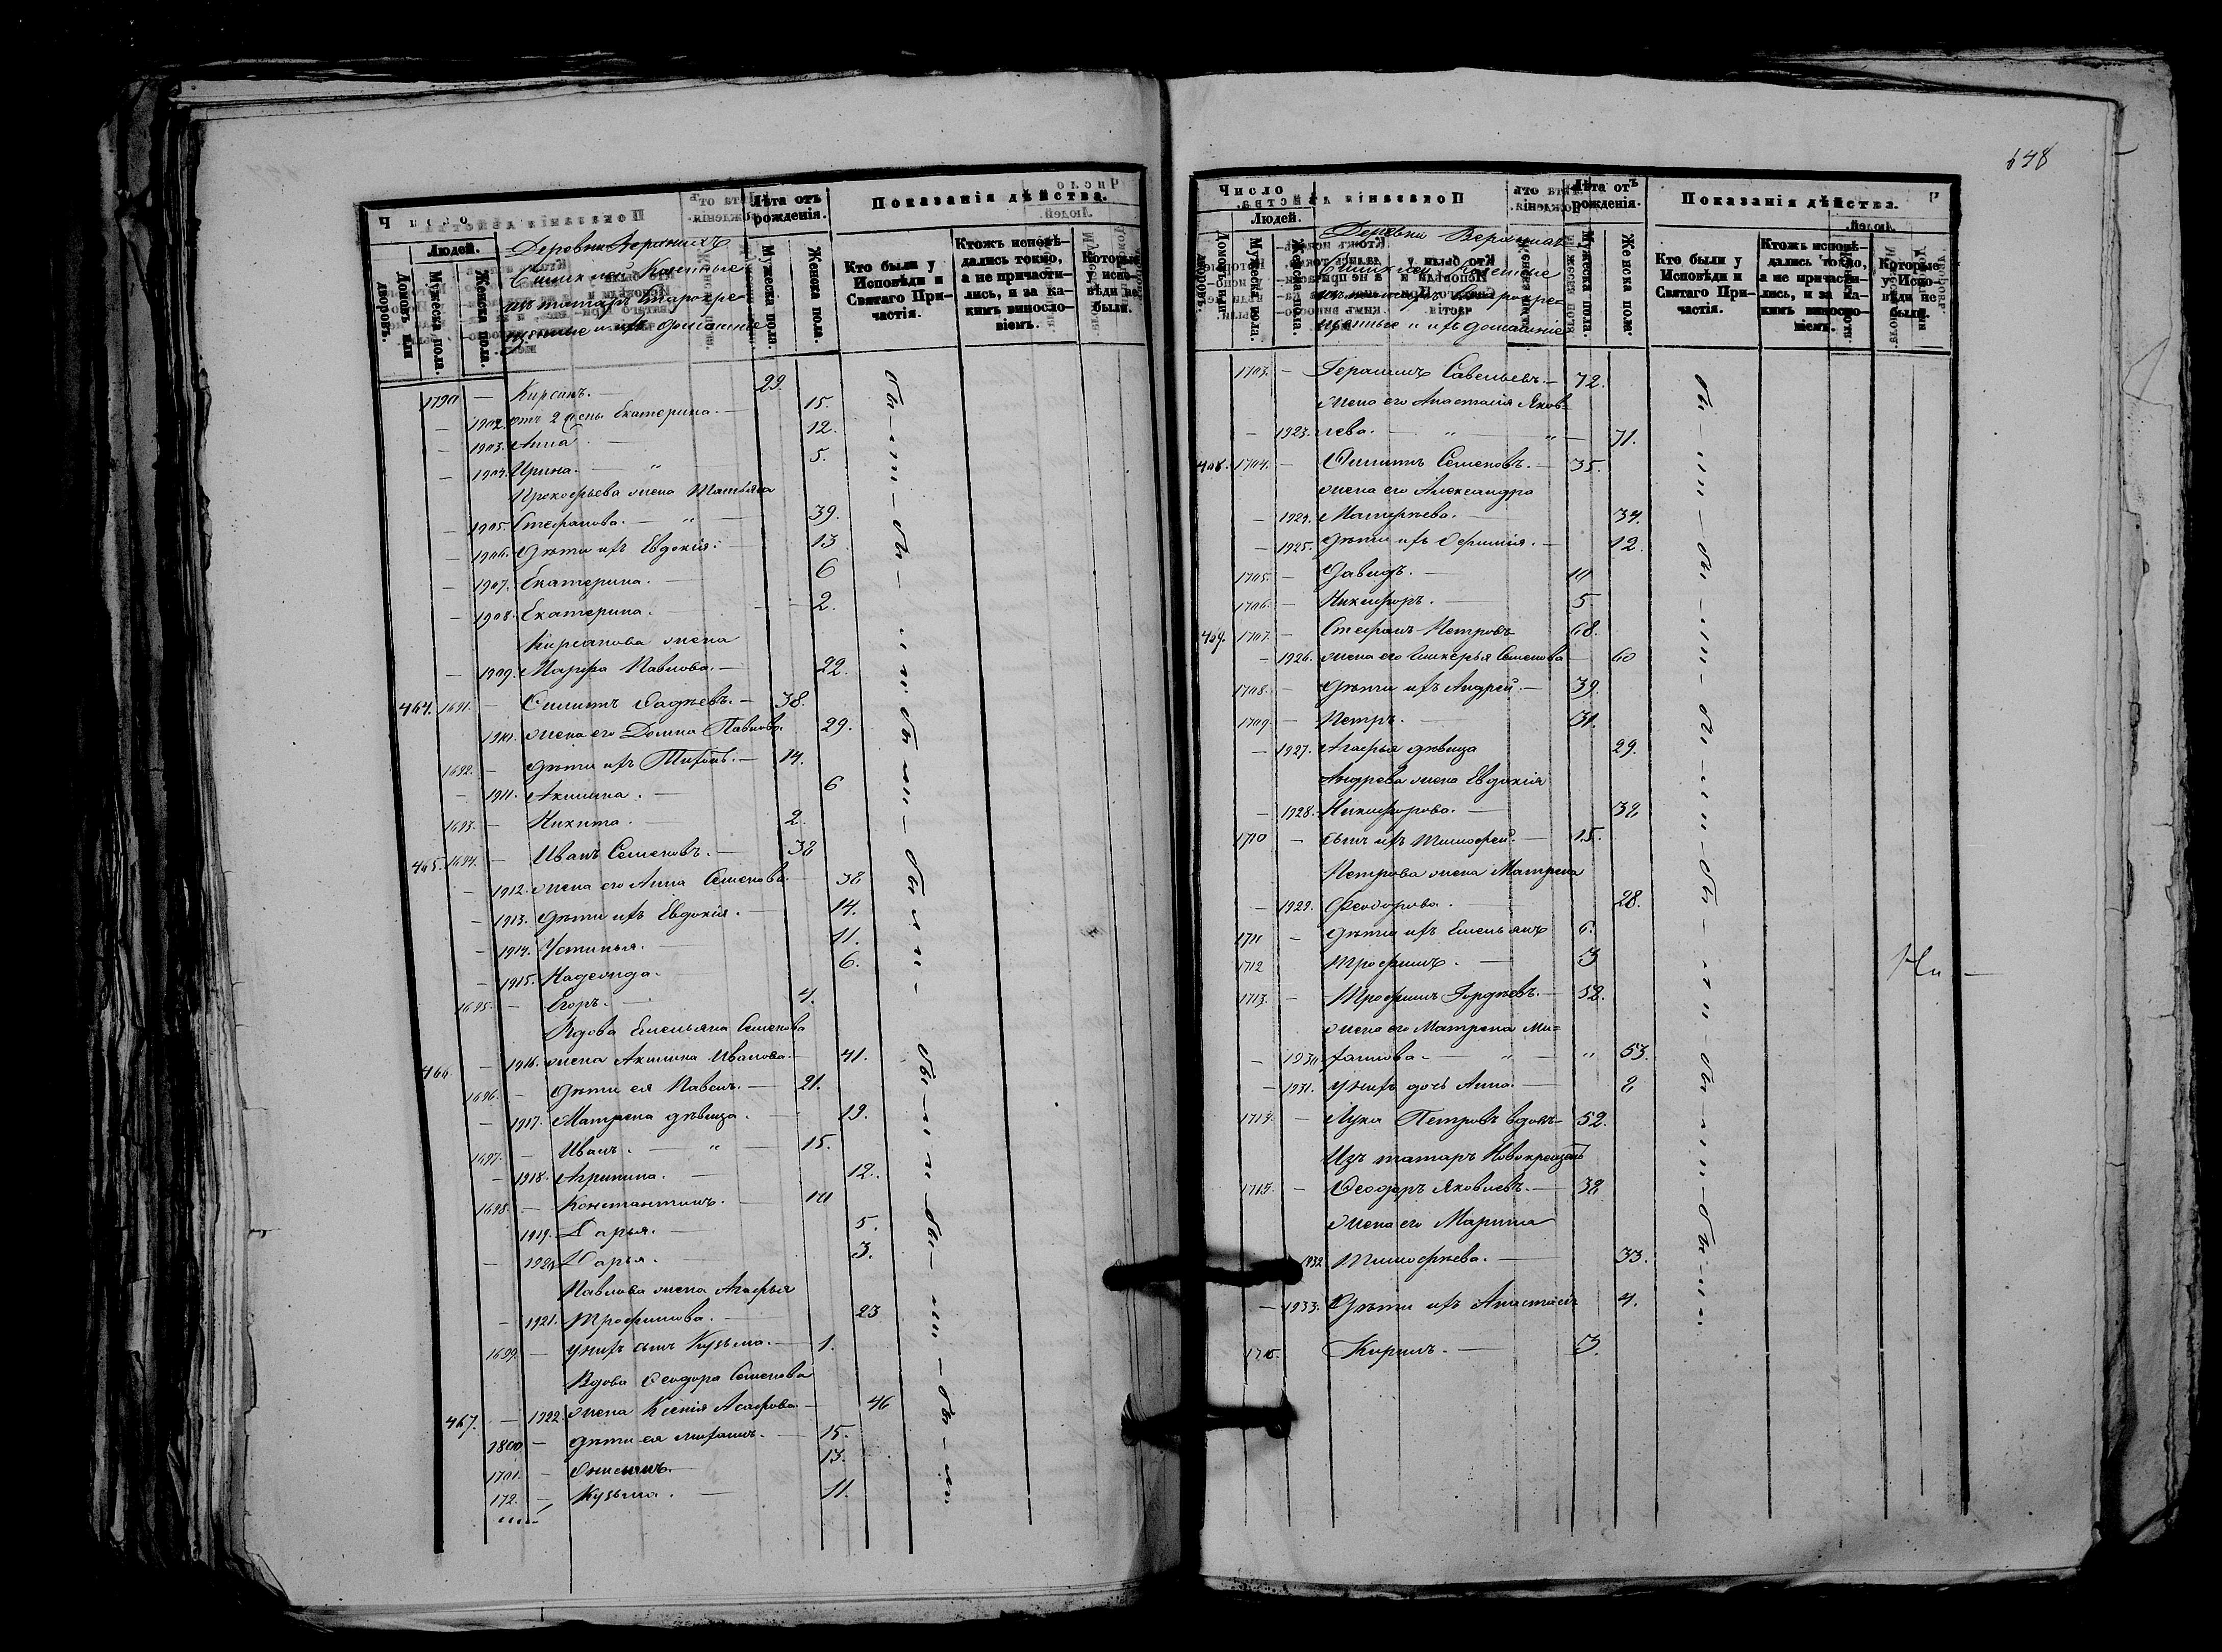 Число
Людей.
Домовъ или дворовъ.
Мужеска пола.
Женска пола.
Деревни Верхнихъ
из татаръ старокре-
щеные и ихъ домашніе
Лѣта отъ рожденія.
Мужеска пола.
Женска пола.
Показанія дѣйства.
Кто были у Исповѣди и Святаго Причастія.
Ктожъ исповѣдались токмо, а не причастились, и за какимъ винословіемъ.
Которые у исповѣди не были.
1790 — Кирсанъ. — 22.
— 1902. отъ 2 жены Екатерина. — 15.
— 1903. Анна. — 12.
— 1904. Ирина. — " — 5.
Прокофьева жена Татьяна
— 1905. Стефанова. — " — 39.
— 1906. Дѣти ихъ Евдокія. — 13
— 1907. Екатерина. — 6
— 1908. Екатерина. — 2.
Кирсанова жена
— 1909. Марфа Павлова. — 22.
464. 1691. — Филиппъ Фадѣевъ. — 38.
1910. жена его Домна Павлова. 29.
1692. — Дѣти ихъ Тихонъ. — 14.
— 1911. Акилина. — 6
1693. — Никита. — 2.
465. 1694. — Иванъ Семеновъ. — 38
— 1912. жена его Анна Семенова. 38
— 1913. Дѣти ихъ Евдокія. — 14.
— 1914. Устинья. — 11.
— 1915. Надежда. 6.
1695. — Егоръ. — 4.
Вдова Емельяна Семенова
466 — 1916. жена Акилина Иванова. — 41.
1696. — Дѣти ея Павелъ. — 21.
— 1917. Матрена дѣвица. — 19.
1697. — Иванъ. — " — 15.
— 1918. Агрипина. — 12.
1698. — Константинъ. — 10
1919. Дарья. — 5.
— 1920 Дарья. — 3.
Павлова жена Агафья
— 1921. Трофимова. — 23
1699. — У нихъ сынъ Кузьма. — 1.
Вдова Феодора Семенова
467. — 1922. жена Ксенія Асафова. — 46
1800 — Дѣти ея 15.
1701. — 13.
172. — Кузьма. — 11.
648
Число
Людей.
Домовъ или дворовъ.
Мужеска пола.
Женска пола.
Деревни Верхнихъ
из татаръ старокре-
щеные и ихъ домашніе
Лѣта отъ рожденія.
Мужеска пола.
Женска пола.
Показанія дѣйства.
Кто были у Исповѣди и Святаго Причастія.
Ктожъ исповѣдались токмо, а не причастились, и за какимъ винословіемъ.
Которые у Исповѣди не были.
1703. — Герасимъ Савельевъ. — 72.
жена его Анастасія Яков-
— 1923. лева. — " — " — 71.
468. 1704. — Филиппъ Семеновъ. — 35.
жена его Александра
— 1924. Матвѣева. — 34.
— 1925. Дѣти ихъ Офимія. — 12.
1705. — Давидъ. — 10
1706. — Никифоръ. — 5
469. 1707. — Стефанъ Петровъ 68.
— 1926. жена его Гликерья Семенова — 60
1708. — Дѣти ихъ Андрей. — 39.
1709. — Петръ. — 31.
— 1927. Агафья дѣвица 29.
Андреева жена Евдокія
— 1928. Никифорова. — 38
1710 — сынъ ихъ Тимофей. — 15.
Петрова жена Матрена
— 1929. Феодорова. — 28.
1711 — Дѣти ихъ Емельянъ 6.
1712 Трофимъ. — 3
1713. — Трофимъ Гордѣевъ. — 52.
жена его Матрена Ми-
— 1930 хайлова. — " — " 53.
— 1931. У нихъ дочь Анна. — 8
1714. — Лука Петровъ вдовъ — 52.
Изъ татаръ Новокрещенъ
1715. — Феодоръ Яковлевъ. — 38
жена его Марина
1932 Тимофѣева. — 33.
— 1933. Дѣти ихъ Анастасія 4.
1716. Кирилъ. — 3.